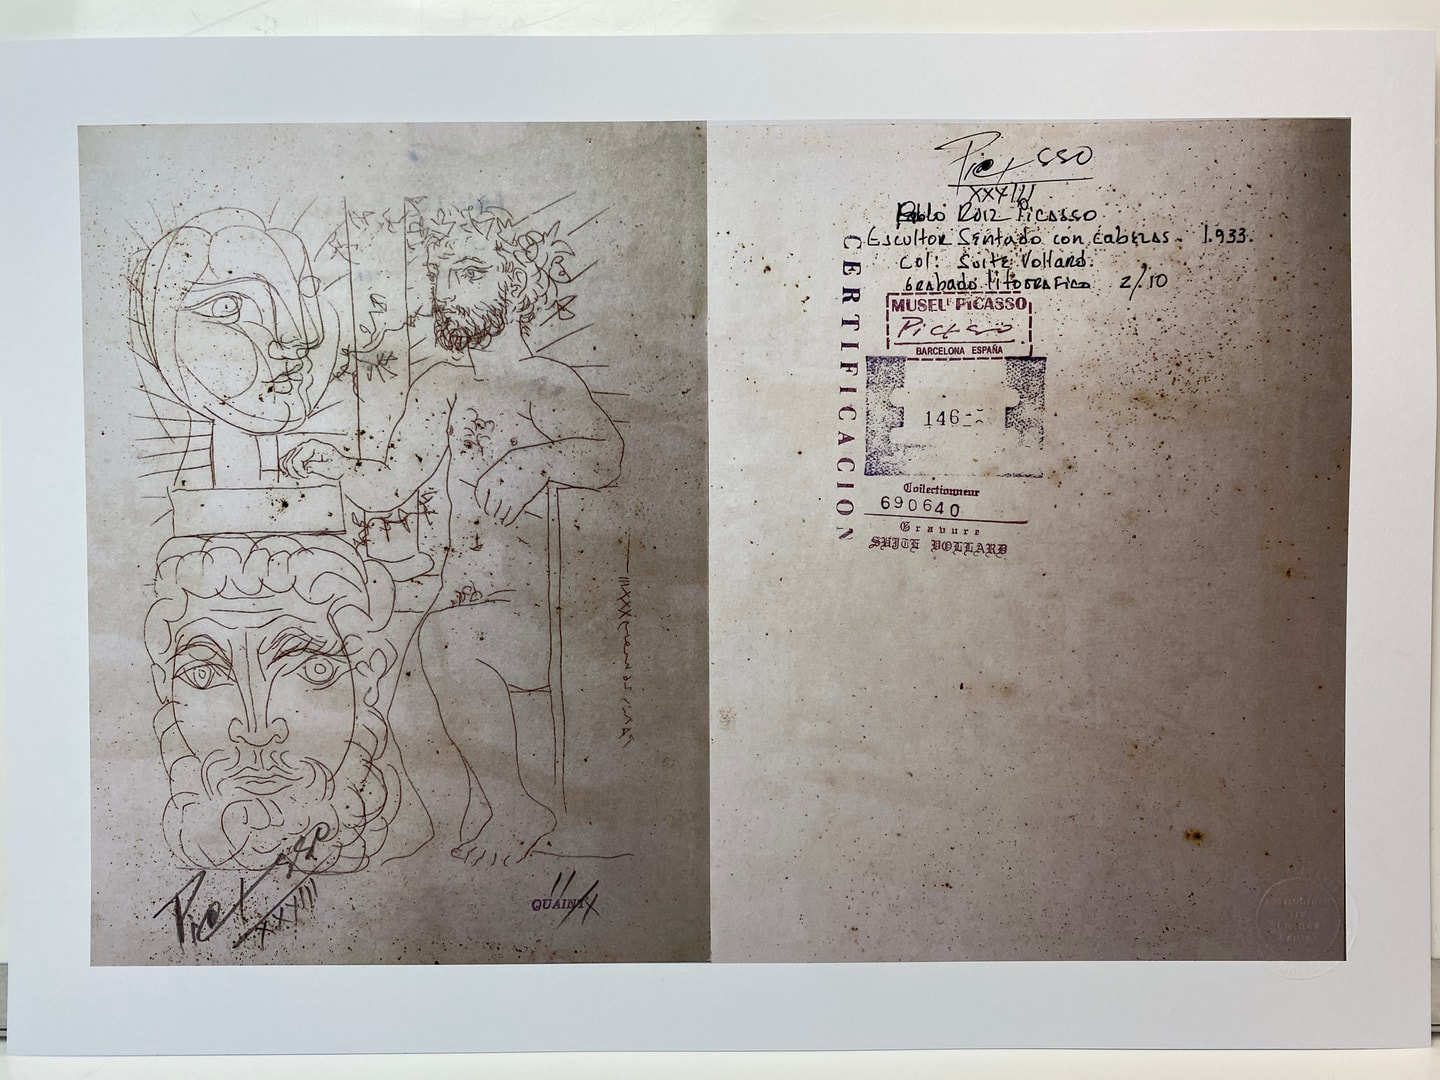 Picasso
XXXIII
QUAINT
II/X
Picasso
XXXIII
Pablo Ruiz Picasso
Escultor Sentado con cabezas - 1.933.
Col: Suite Vollard.
Grabado litografico 2/10
CERTIFICACION
MUSEU PICASSO
Picasso
BARCELONA ESPAÑA
146
Collectionneur
690640
Gravure
SUITE VOLLARD